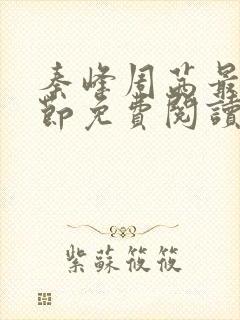 秦峰周茜最
節免費閱讀
紫蘇筱筱